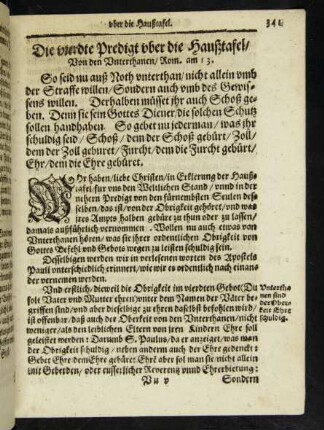 vber die Haußtafel.
341
Die vierdte Predigt vber die Haußtafel/
Von den Vnterthanen/ Rom. am 13.
So seid nu auß Noth vnterthan/ nicht allein vmb
der Straffe willen/ Sondern auch vmb des Gewis-
sens willen. Derhalben müsset jhr auch Schoß ge-
ben. Denn sie sein Gottes Diener/ die solchen Schutz
sollen handhaben. So gebet nu jederman/ was jhr
schuldig seid/ Schoß/ dem der Schoß gebürt/ Zoll/
dem der Zoll gebüret/ Furcht/ dem die Furcht gebürt/
Ehr/ dem die Ehre gebüret.
WIr haben/ liebe Christen/ in Erklerung der Hauß-
tafel/ für vns den Weltlichen Stand/ vnnd in der
nehern Predigt von den fürnembsten Seulen des-
selben/ das ist/ von der Obrigkeit gehöret/ vnd was
jres Ampts halben gebüre zu thun oder zu lassen/
damals außführlich vernommen. Wollen nu auch etwas von
Vnterthanen hören/ was sie jhrer ordenlichen Obrigkeit von
Gottes Befehl vnd Gebots wegen zu leisten schuldig sein.
Desselbigen werden wir in verlesenen worten des Apostels
Pauli vnterschiedlich erinnert/ wie wir es ordenlich nach einan-
der vernemen werden.
Vnd erstlich/ dieweil die Obrigkeit im vierdten Gebot (Du
solt Vater vnd Mutter ehren) vnter dem Namen der Väter be-
griffen sind/ vnd aber dieselbige zu ehren daselbst befohlen wird/
ist offenbar/ daß auch der Oberkeit von den Vnterthanen/ nicht
weniger/ als den leiblichen Eltern von jren Kindern Ehre soll
geleistet werden: Darumb S. Paulus/ da er anzeiget/ was man
der Obrigkeit schuldig/ neben anderm auch der Ehre gedenckt:
Gebet Ehre dem Ehre gebüret: Ehre aber sol man sie/ nicht allein
mit Geberden/ oder eusserlicher Reuerentz vnnd Ehrerbietung:
Vntertha-
nen sind
der Ober-
keit Ehre
schuldig.
Sondern